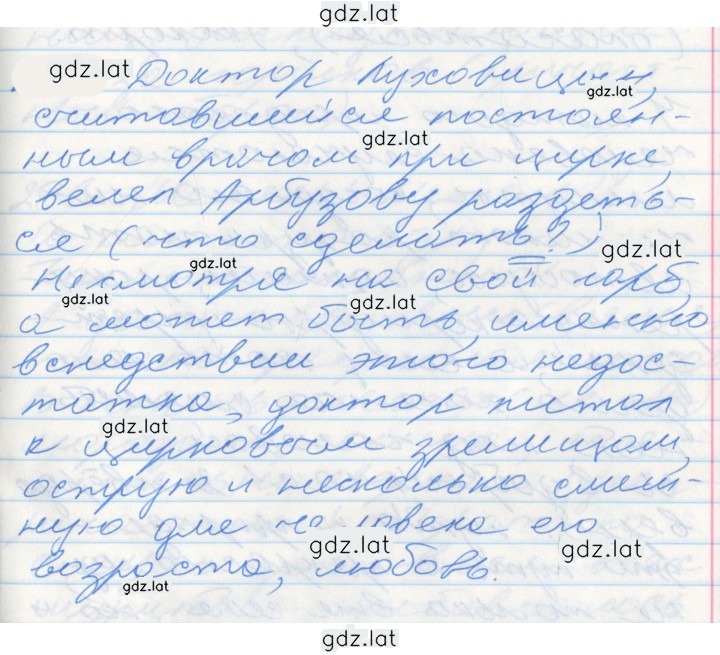 gdz.lat
gdz.lat Доктор Луховицын,
gdz.lat
считавшийся постоян-
gdz.lat
ным врачом при цирке,
велел Арбузову раздеть-
ся (что сделать?)
gdz.lat
gdz.lat
Несмотря на свой горб,
gdz.lat
gdz.lat
а может быть, именно
вследствии этого недос-
татка, доктор питал
gdz.lat
к цирковым зрелищам,
острую и несколько смеш-
ную для человека его
gdz.lat
gdz.lat
возраста, любовь.
gdz.lat
gdz.lat